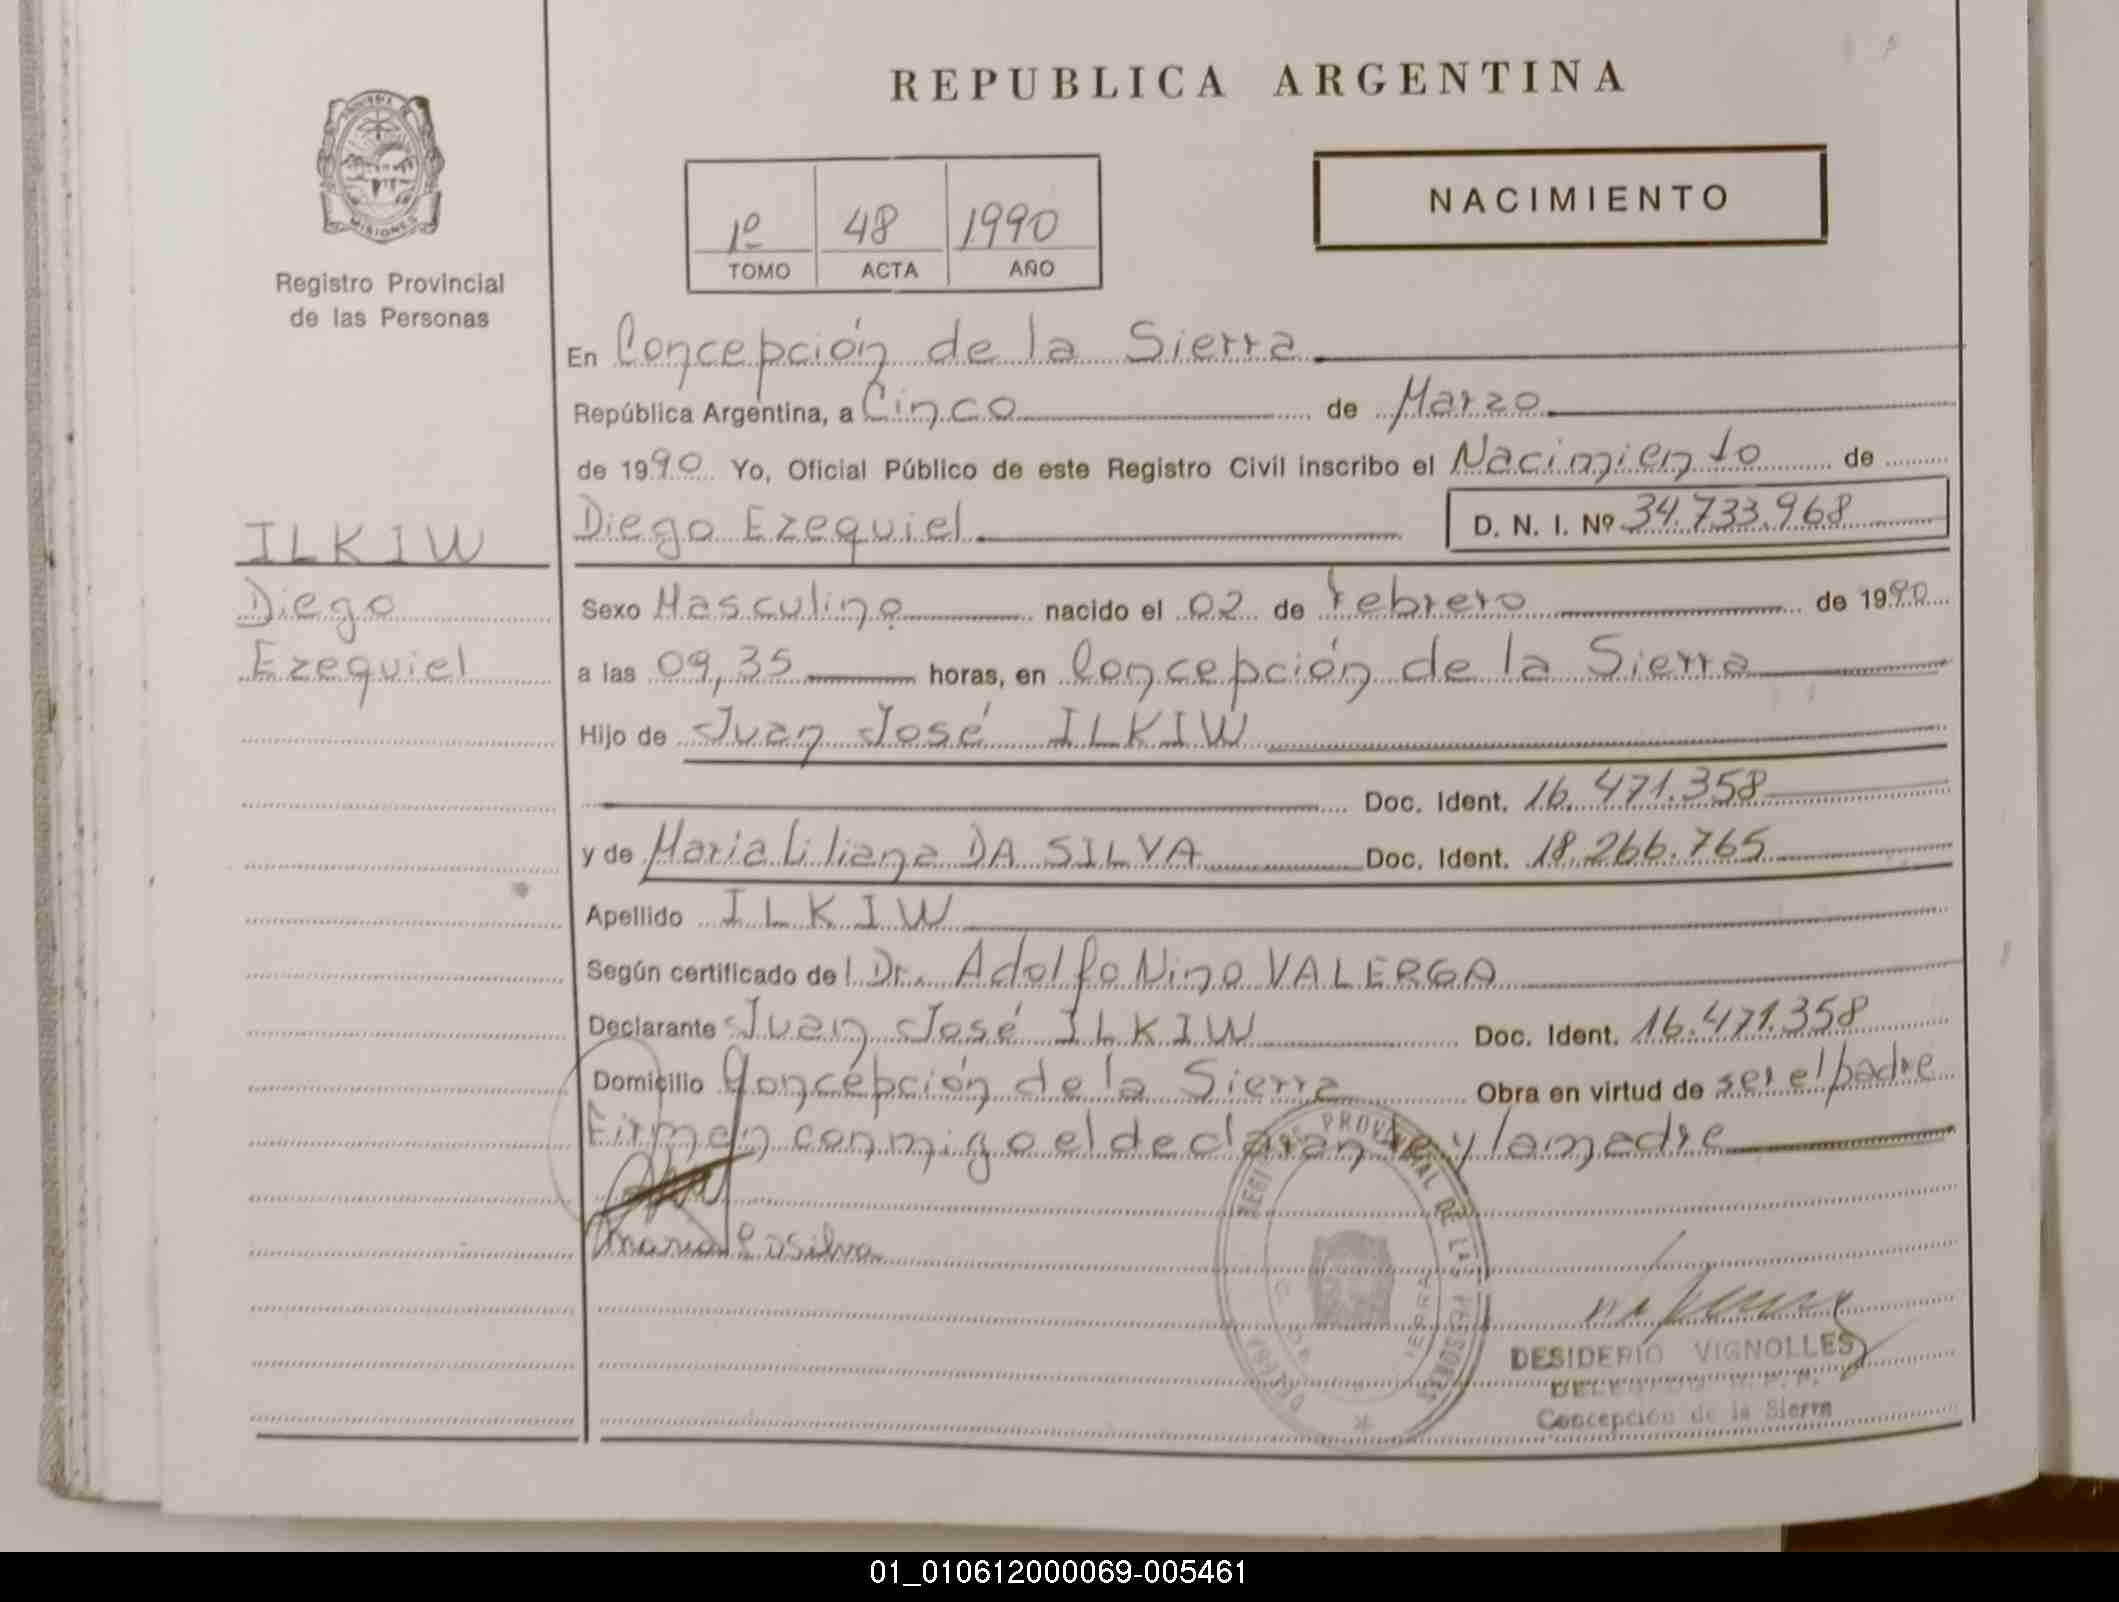 REPUBLICA ARGENTINA
MISIONES
Registro Provincial
de las Personas
1º 48 1990
TOMO ACTA AÑO
NACIMIENTO
En Concepción de la Sierra
República Argentina, a Cinco de Marzo
de 1990 Yo, Oficial Público de este Registro Civil inscribo el Nacimiento de
Diego Ezequiel D. N. I. Nº 34.733.968
ILKIW
Diego
Ezequiel
Sexo Masculino nacido el 02 de Febrero de 1990
a las 09,35 horas, en Concepción de la Sierra
Hijo de Juan José ILKIW
Doc. Ident. 16.471.358
y de Maria Liliana DA SILVA Doc. Ident. 18.266.765
Apellido ILKIW
Según certificado del Dr. Adolfo Nino VALERGA
Declarante Juan José ILKIW Doc. Ident. 16.471.358
Domicilio Concepción de la Sierra Obra en virtud de ser el padre
Firman conmigo el declarante y la madre
REGISTRO PROVINCIAL DE LAS PERSONAS
DESIDERIO VIGNOLLES
DELEGADO R.P.P.
Concepción de la Sierra
01_010612000069-005461